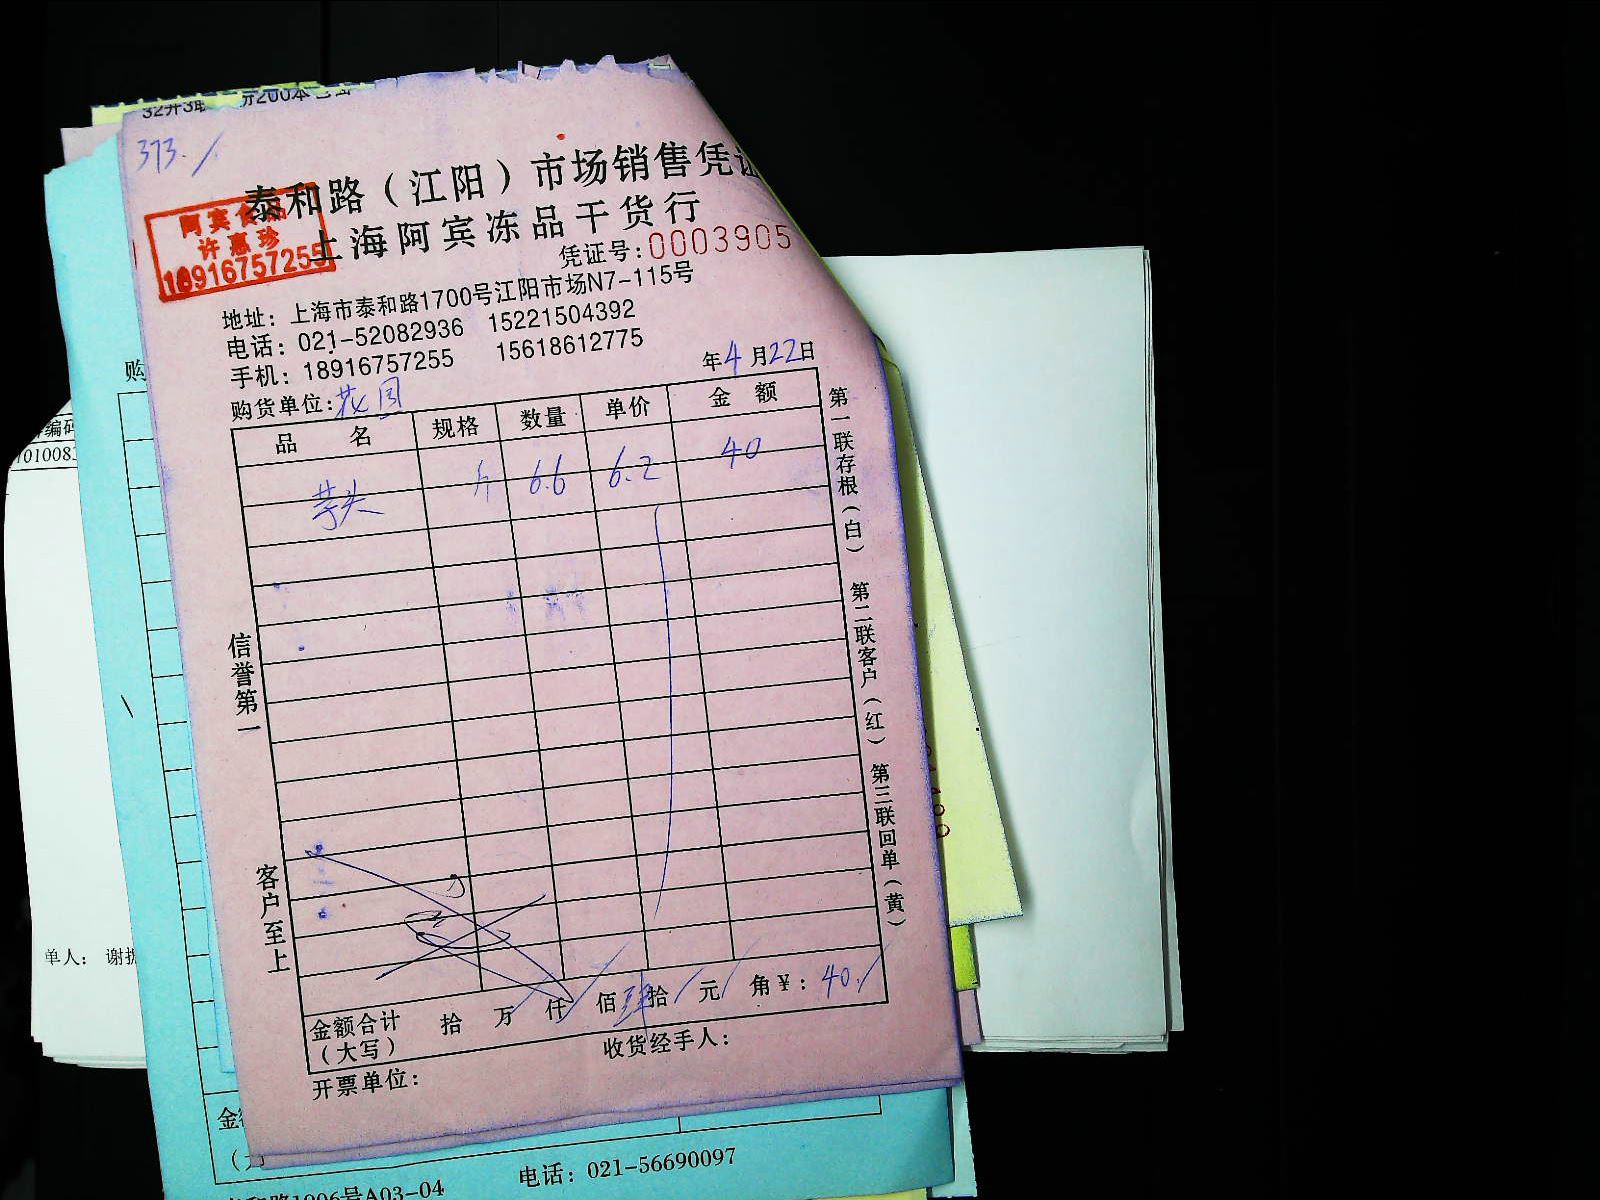 373./
泰和路（江阳）市场销售凭
上海阿宾冻品干货行
阿宾食品
许惠珍
18916757255
凭证号：0003905
地址：上海市泰和路1700号江阳市场N7-115号
电话：021-52082936 15221504392
手机：18916757255 15618612775
年4月22日
购货单位：
品 名 规格 数量 单价 金 额
芋头 斤 6.6 6.2 40
第一联存根（白） 第二联客户（红） 第三联回单（黄）
信誉第一
客户至上
金额合计（大写） 拾 万 仟 佰 肆拾 元 角 ¥：40./
收货经手人：
开票单位：
购
编码
单人：谢
金
电话：021-56690097
路1006号A03-04